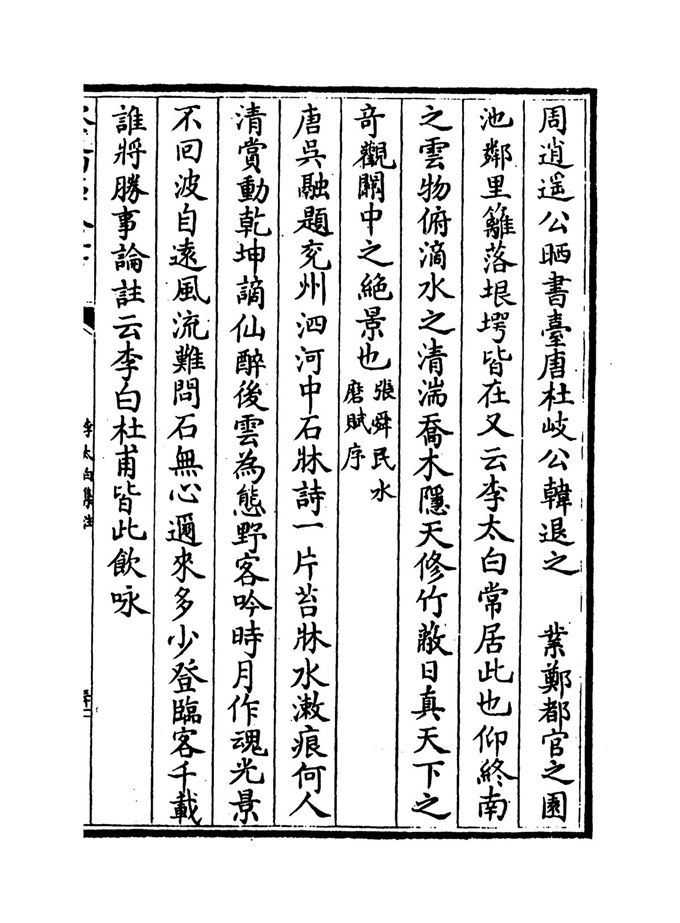 周逍遥公晒書臺唐杜岐公韓退之　業鄭都官之園
池鄰里籬落垠堮皆在又云李太白常居此也仰終南
之雲物俯滴水之清湍喬木隱天修竹蔽日真天下之
竒觀關中之絶景也張舜民水
磨賦序
唐吳融題兖州泗河中石牀詩一片苔牀水漱痕何人
清賞動乾坤謫仙醉後雲為態野客吟時月作魂光景
不回波自遠風流難問石無心邇來多少登臨客千載
誰將勝事論註云李白杜甫皆此飲咏
李太白集注